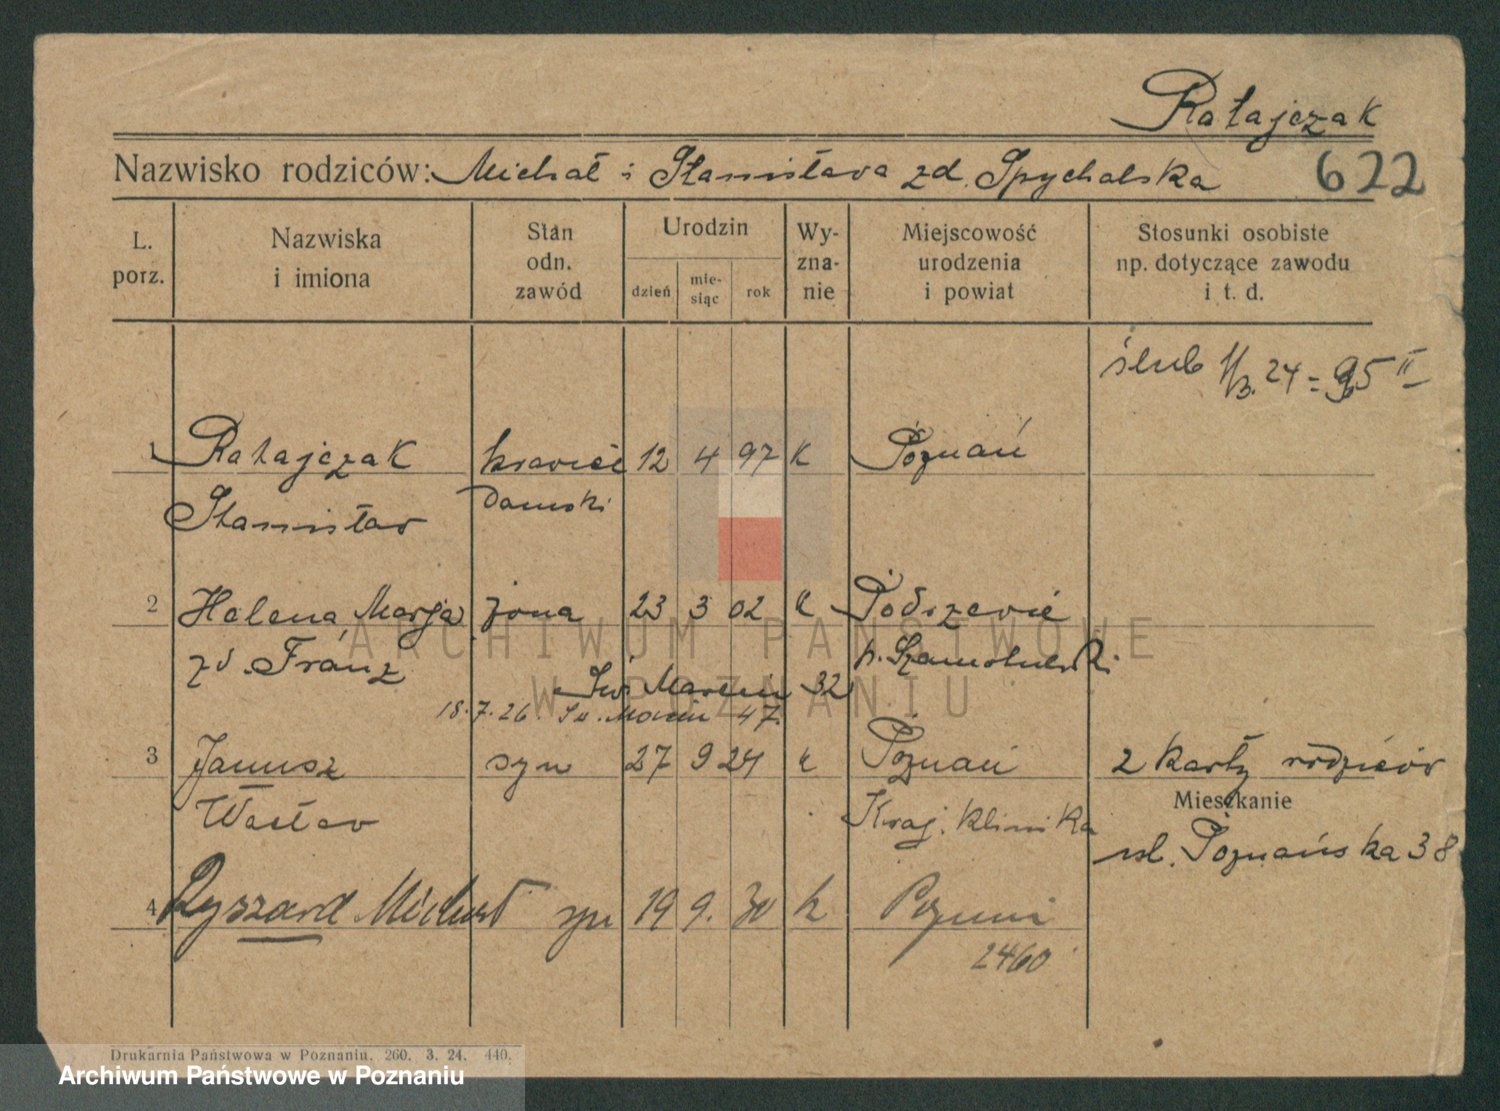 Ratajczak
Nazwisko rodziców: Michał i Stanisława zd. Spychalska 622
L. porz.
Nazwiska i imiona
Stan odn. zawód
Urodzin
dzień
mie-
siąc
rok
Wy-
zna-
nie
Miejscowość urodzenia i powiat
Stosunki osobiste
np. dotyczące zawodu
i t. d.
ślub 1/3. 24 = 95 II
1 Ratajczak krawiec 12 4 97 K Poznań
Stanisław damski
2 Helena, Marja żona 23 3 02 K
zd. Franz p. Szamotulski
Św. Marcin 32
18.7.26. Św. Marcin 47.
3 Janusz syn 27 9 24 K Poznań 2 karty rodziców
Mieszkanie
Wacław Kraj. klinika
ul. Poznańska 38
4 Ryszard Michał syn 19 9. 30 k Poznań
2460
Drukarnia Państwowa w Poznaniu. 260. 3. 24. 440.
Archiwum Państwowe w Poznaniu
ARCHIWUM PAŃSTWOWE
W POZNANIU